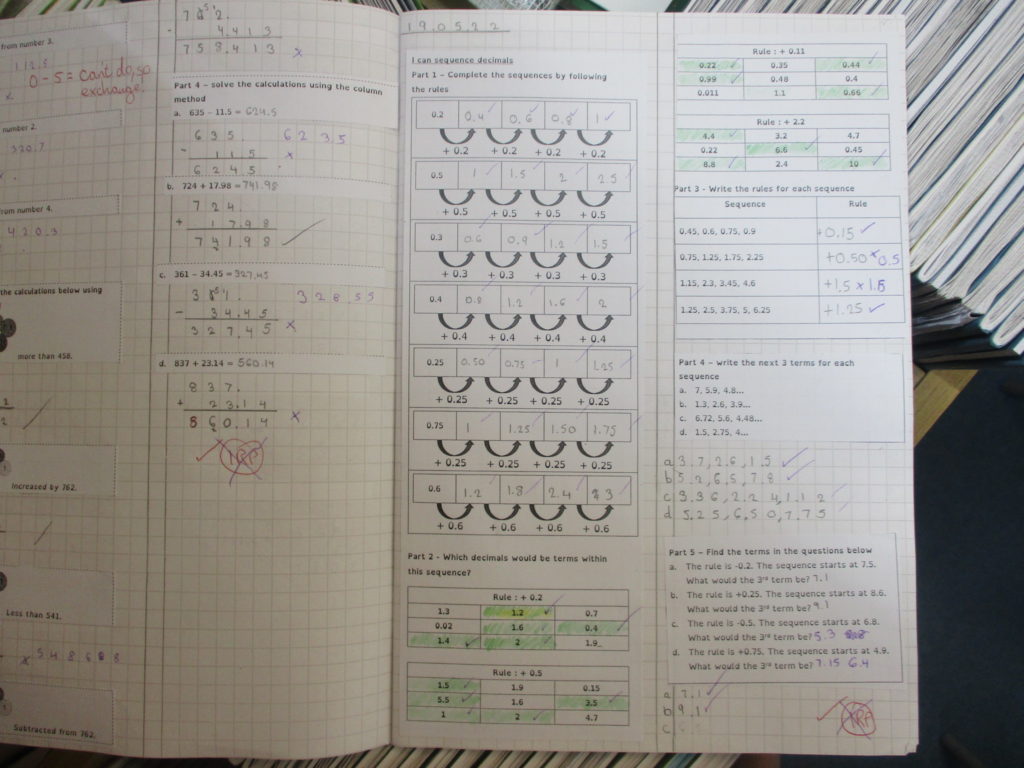 from number 3.
0 - 5 = can't do, so
exchange.
number 2.
320.7
from number 4.
4 2 0 . 3
the calculations below using
more than 458.
Increased by 762.
Less than 541.
Subtracted from 762.
4.4 1 3
7 5 8.4 1 3 x
Part 4 - solve the calculations using the column
method
a. 635 - 11.5 = 624.5
6 3 5 . 6 2 3 5
- 1 1 5 x
6 2 4 5
b. 724 + 17.98 = 741.98
7 2 4.
+ 1 7.9 8
7 4 1.9 8
c. 361 - 34.45 = 327.45
3 2 8 5 5
- 3 4.4 5
3 2 7.4 5 x
d. 837 + 23.14 = 560.14
8 3 7.
+ 2 3.1 4
8 6 0.1 4 x
19.05.22
I can sequence decimals
Part 1 - Complete the sequences by following
the rules
0.2 0.4 0.6 0.8 1
+ 0.2 + 0.2 + 0.2 + 0.2
0.5 1 1.5 2 2.5
+ 0.5 + 0.5 + 0.5 + 0.5
0.3 0.6 0.9 1.2 1.5
+ 0.3 + 0.3 + 0.3 + 0.3
0.4 0.8 1.2 1.6 2
+ 0.4 + 0.4 + 0.4 + 0.4
0.25 0.50 0.75 1 1.25
+ 0.25 + 0.25 + 0.25 + 0.25
0.75 1 1.25 1.50 1.75
+ 0.25 + 0.25 + 0.25 + 0.25
0.6 1.2 1.8 2.4 3
+ 0.6 + 0.6 + 0.6 + 0.6
Part 2 - Which decimals would be terms within
this sequence?
Rule : + 0.2
1.3 1.2 0.7
0.02 1.6 0.4
1.4 2 1.9_
Rule : + 0.5
1.5 1.9 0.15
5.5 1.6 3.5
1 2 4.7
Rule : + 0.11
0.22 0.35 0.44
0.99 0.48 0.4
0.011 1.1 0.66
Rule : + 2.2
4.4 3.2 4.7
0.22 6.6 0.45
8.8 2.4 10
Part 3 - Write the rules for each sequence
Sequence Rule
0.45, 0.6, 0.75, 0.9 +0.15
0.75, 1.25, 1.75, 2.25 +0.50 x 0.5
1.15, 2.3, 3.45, 4.6 +1.5 x 1.15
1.25, 2.5, 3.75, 5, 6.25 +1.25
Part 4 - write the next 3 terms for each
sequence
a. 7, 5.9, 4.8...
b. 1.3, 2.6, 3.9...
c. 6.72, 5.6, 4.48...
d. 1.5, 2.75, 4...
a 3.7, 2.6, 1.5
b 5.2, 6.5, 7.8
c 3.36, 2.24, 1.12
d 5.25, 6.50, 7.75
Part 5 - Find the terms in the questions below
a. The rule is -0.2. The sequence starts at 7.5.
What would the 3rd term be? 7.1
b. The rule is +0.25. The sequence starts at 8.6.
What would the 3rd term be? 9.1
c. The rule is -0.5. The sequence starts at 6.8.
What would the 3rd term be? 5.3
d. The rule is +0.75. The sequence starts at 4.9.
What would the 3rd term be? 7.15 6.4
a 7.1
b 9.1
c